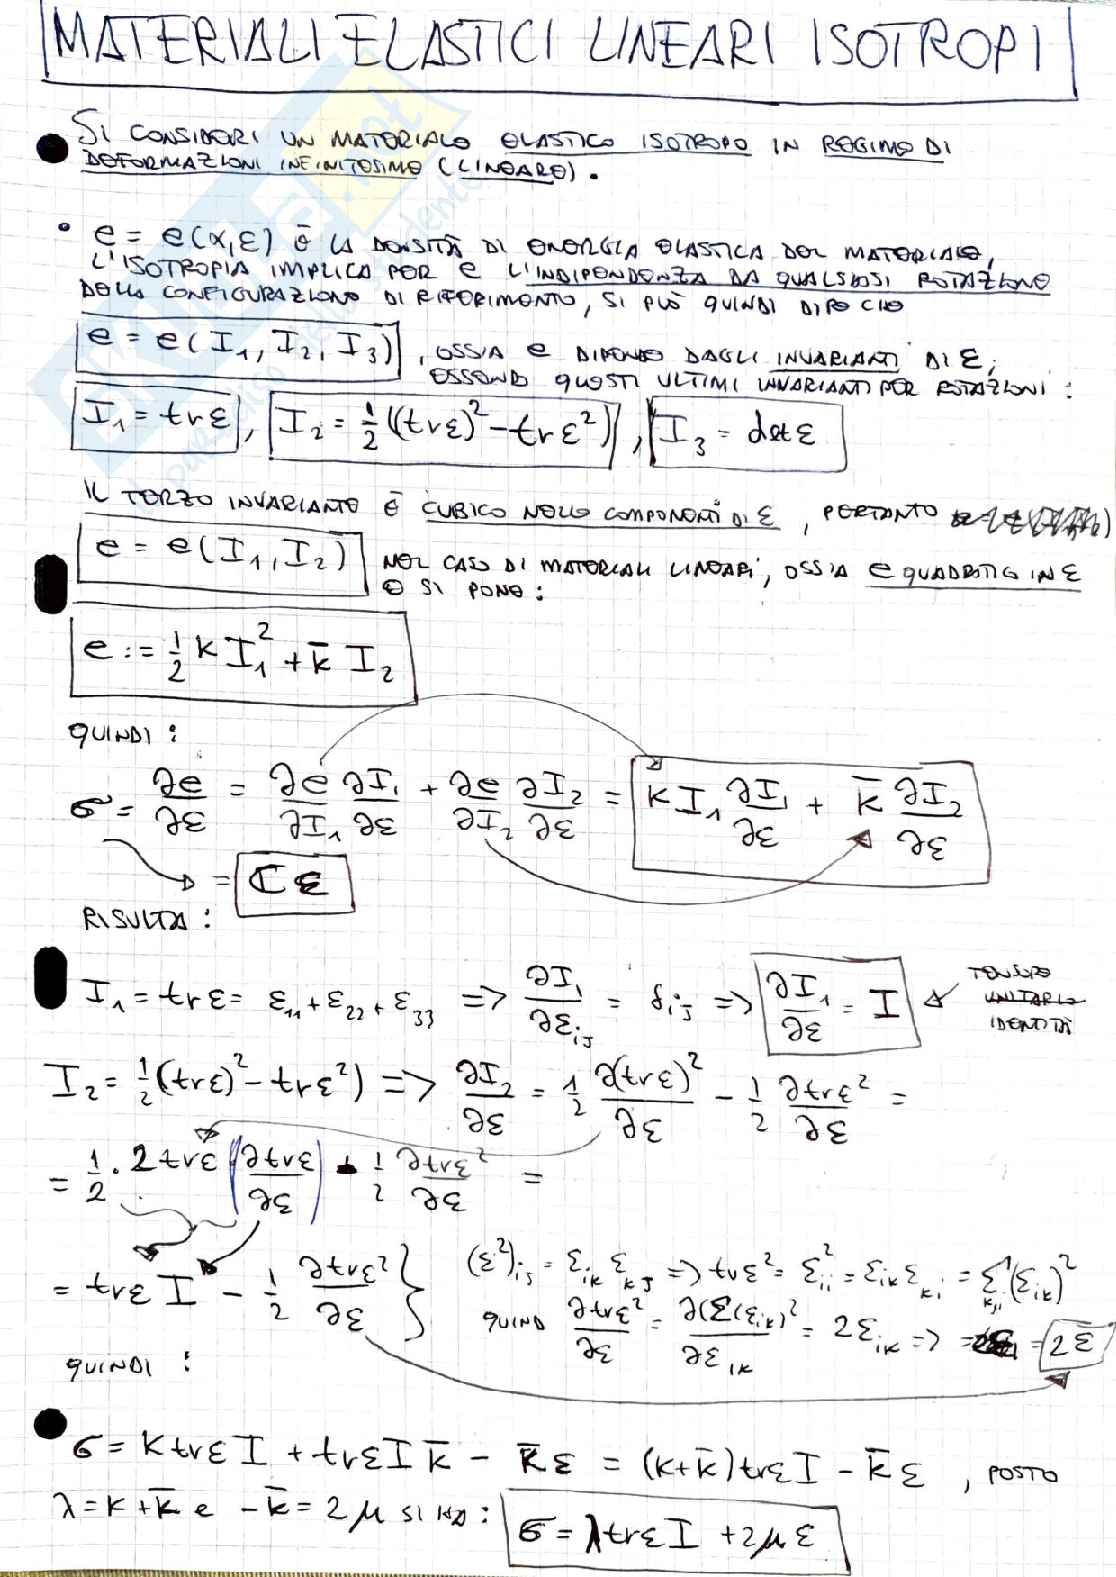 MATERIALI ELASTICI LINEARI ISOTROPI
SI CONSIDERI UN MATERIALE ELASTICO ISOTROPO IN REGIME DI
DEFORMAZIONI INFINITESIME (LINEARE).
e = e(x,ε) È LA DENSITÀ DI ENERGIA ELASTICA DEL MATERIALE,
L'ISOTROPIA IMPLICA PER e L'INDIPENDENZA DA QUALSIASI ROTAZIONE
DELLA CONFIGURAZIONE DI RIFERIMENTO, SI PUÒ QUINDI DIRE CHE
e = e(I₁, I₂, I₃), OSSIA e DIPENDE DAGLI INVARIANTI DI ε,
ESSENDO QUESTI ULTIMI INVARIANTI PER ROTAZIONI:
I₁ = trε, I₂ = 1/2((trε)² - trε²), I₃ = detε
IL TERZO INVARIANTE È CUBICO NELLE COMPONENTI DI ε, PERTANTO
e = e(I₁, I₂) NEL CASO DI MATERIALI LINEARI, OSSIA e QUADRATICA IN ε
E SI PONE:
e := 1/2 k I₁² + k̄ I₂
QUINDI:
σ = ∂e/∂ε = ∂e/∂I₁ ∂I₁/∂ε + ∂e/∂I₂ ∂I₂/∂ε = k I₁ ∂I₁/∂ε + k̄ ∂I₂/∂ε
= ℂε
RISULTA:
I₁ = trε = ε₁₁ + ε₂₂ + ε₃₃ => ∂I₁/∂εᵢⱼ = δᵢⱼ => ∂I₁/∂ε = I
TENSORE
UNITARIO
IDENTITÀ
I₂ = 1/2(trε)² - trε²) => ∂I₂/∂ε = 1/2 ∂(trε)²/∂ε - 1/2 ∂trε²/∂ε =
= 1/2 · 2trε (∂trε/∂ε) - 1/2 ∂trε²/∂ε =
= trε I - 1/2 ∂trε²/∂ε}
(ε²)ᵢⱼ = εᵢₖ εₖⱼ => trε² = ε²ᵢᵢ = εᵢₖ εₖᵢ = Σₖ,ᵢ(εᵢₖ)²
QUINDI ∂trε²/∂ε = ∂(Σ(εᵢₖ)²/∂εᵢₖ = 2εᵢₖ => = 2ε
QUINDI:
σ = k trε I + trε I k̄ - k̄ε = (k+k̄)trε I - k̄ε, POSTO
λ = k + k̄ e -k̄ = 2μ SI HA: σ = λtrε I + 2με